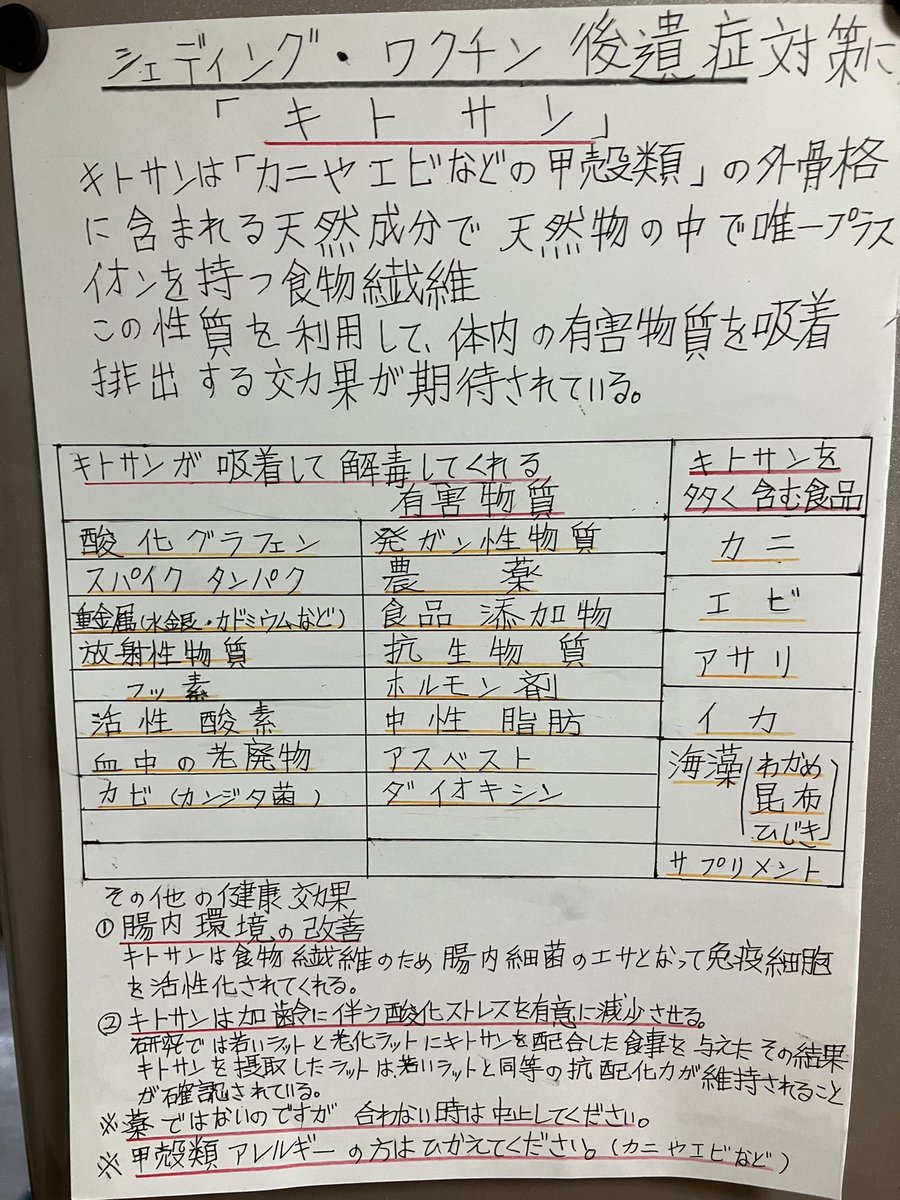 シェディング・ワクチン後遺症対策に
「キトサン」
キトサンは「カニやエビなどの甲殻類」の外骨格
に含まれる天然成分で天然物の中で唯一プラス
イオンを持つ食物繊維
この性質を利用して、体内の有害物質を吸着
排出する効果が期待されている。
キトサンが吸着して解毒してくれる
有害物質
キトサンを
多く含む食品
酸化グラフェン 発ガン性物質
カニ
スパイクタンパク 農薬
重金属(水銀・カドミウムなど) 食品添加物
エビ
放射性物質 抗生物質
アサリ
フッ素 ホルモン剤
活性酸素 中性脂肪
イカ
血中の老廃物 アスベスト
カビ(カンジタ菌) ダイオキシン
海藻(わかめ
昆布
ひじき)
サプリメント
その他の健康効果
①腸内環境の改善
キトサンは食物繊維のため腸内細菌のエサとなって免疫細胞
を活性化されてくれる。
②キトサンは加齢に伴う酸化ストレスを有意に減少させる。
研究では若いラットと老化ラットにキトサンを配合した食事を与えたその結果
キトサンを摂取したラットは、若いラットと同等の抗配化力が維持されること
が確認されている。
※薬ではないのですが合わない時は中止してください。
※甲殻類アレルギーの方はひかえてください。(カニやエビなど)